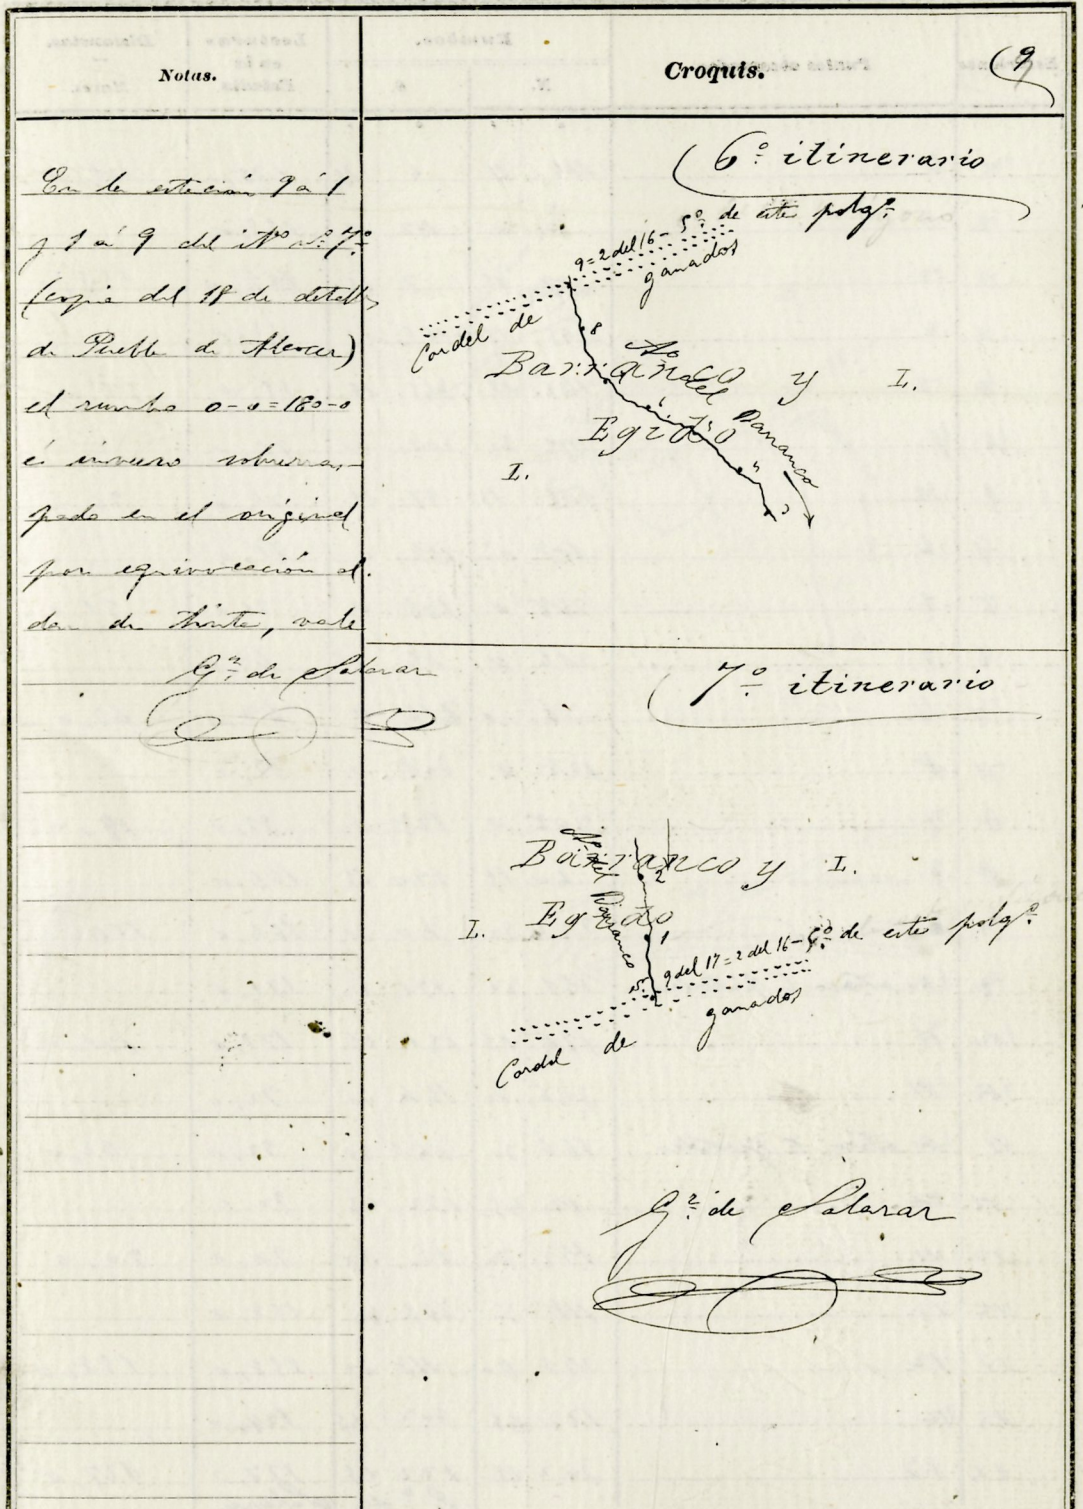 Notas.
Croquis.
9
En la estación 9 á 1
y 1 á 9 del itº nº 7º
(copia del 18 de detalle
de Puebla de Alcocer)
el rumbo 0-0=180-0
é inverso sobreras-
pado en el original
por equivocación al
dar de tinta, vale
Gª de Salazar
6º itinerario
9=2 del 16-5º de este polgº
Cordel de ganados
8
Barranco y
I.
Aº del Barranco
Egido
I.
7º itinerario
Barranco y
I.
2
Aº del Barranco
Egido
I.
1
9 del 17=2 del 16-5º de este polgº
Cordel de ganados
Gª de Salazar